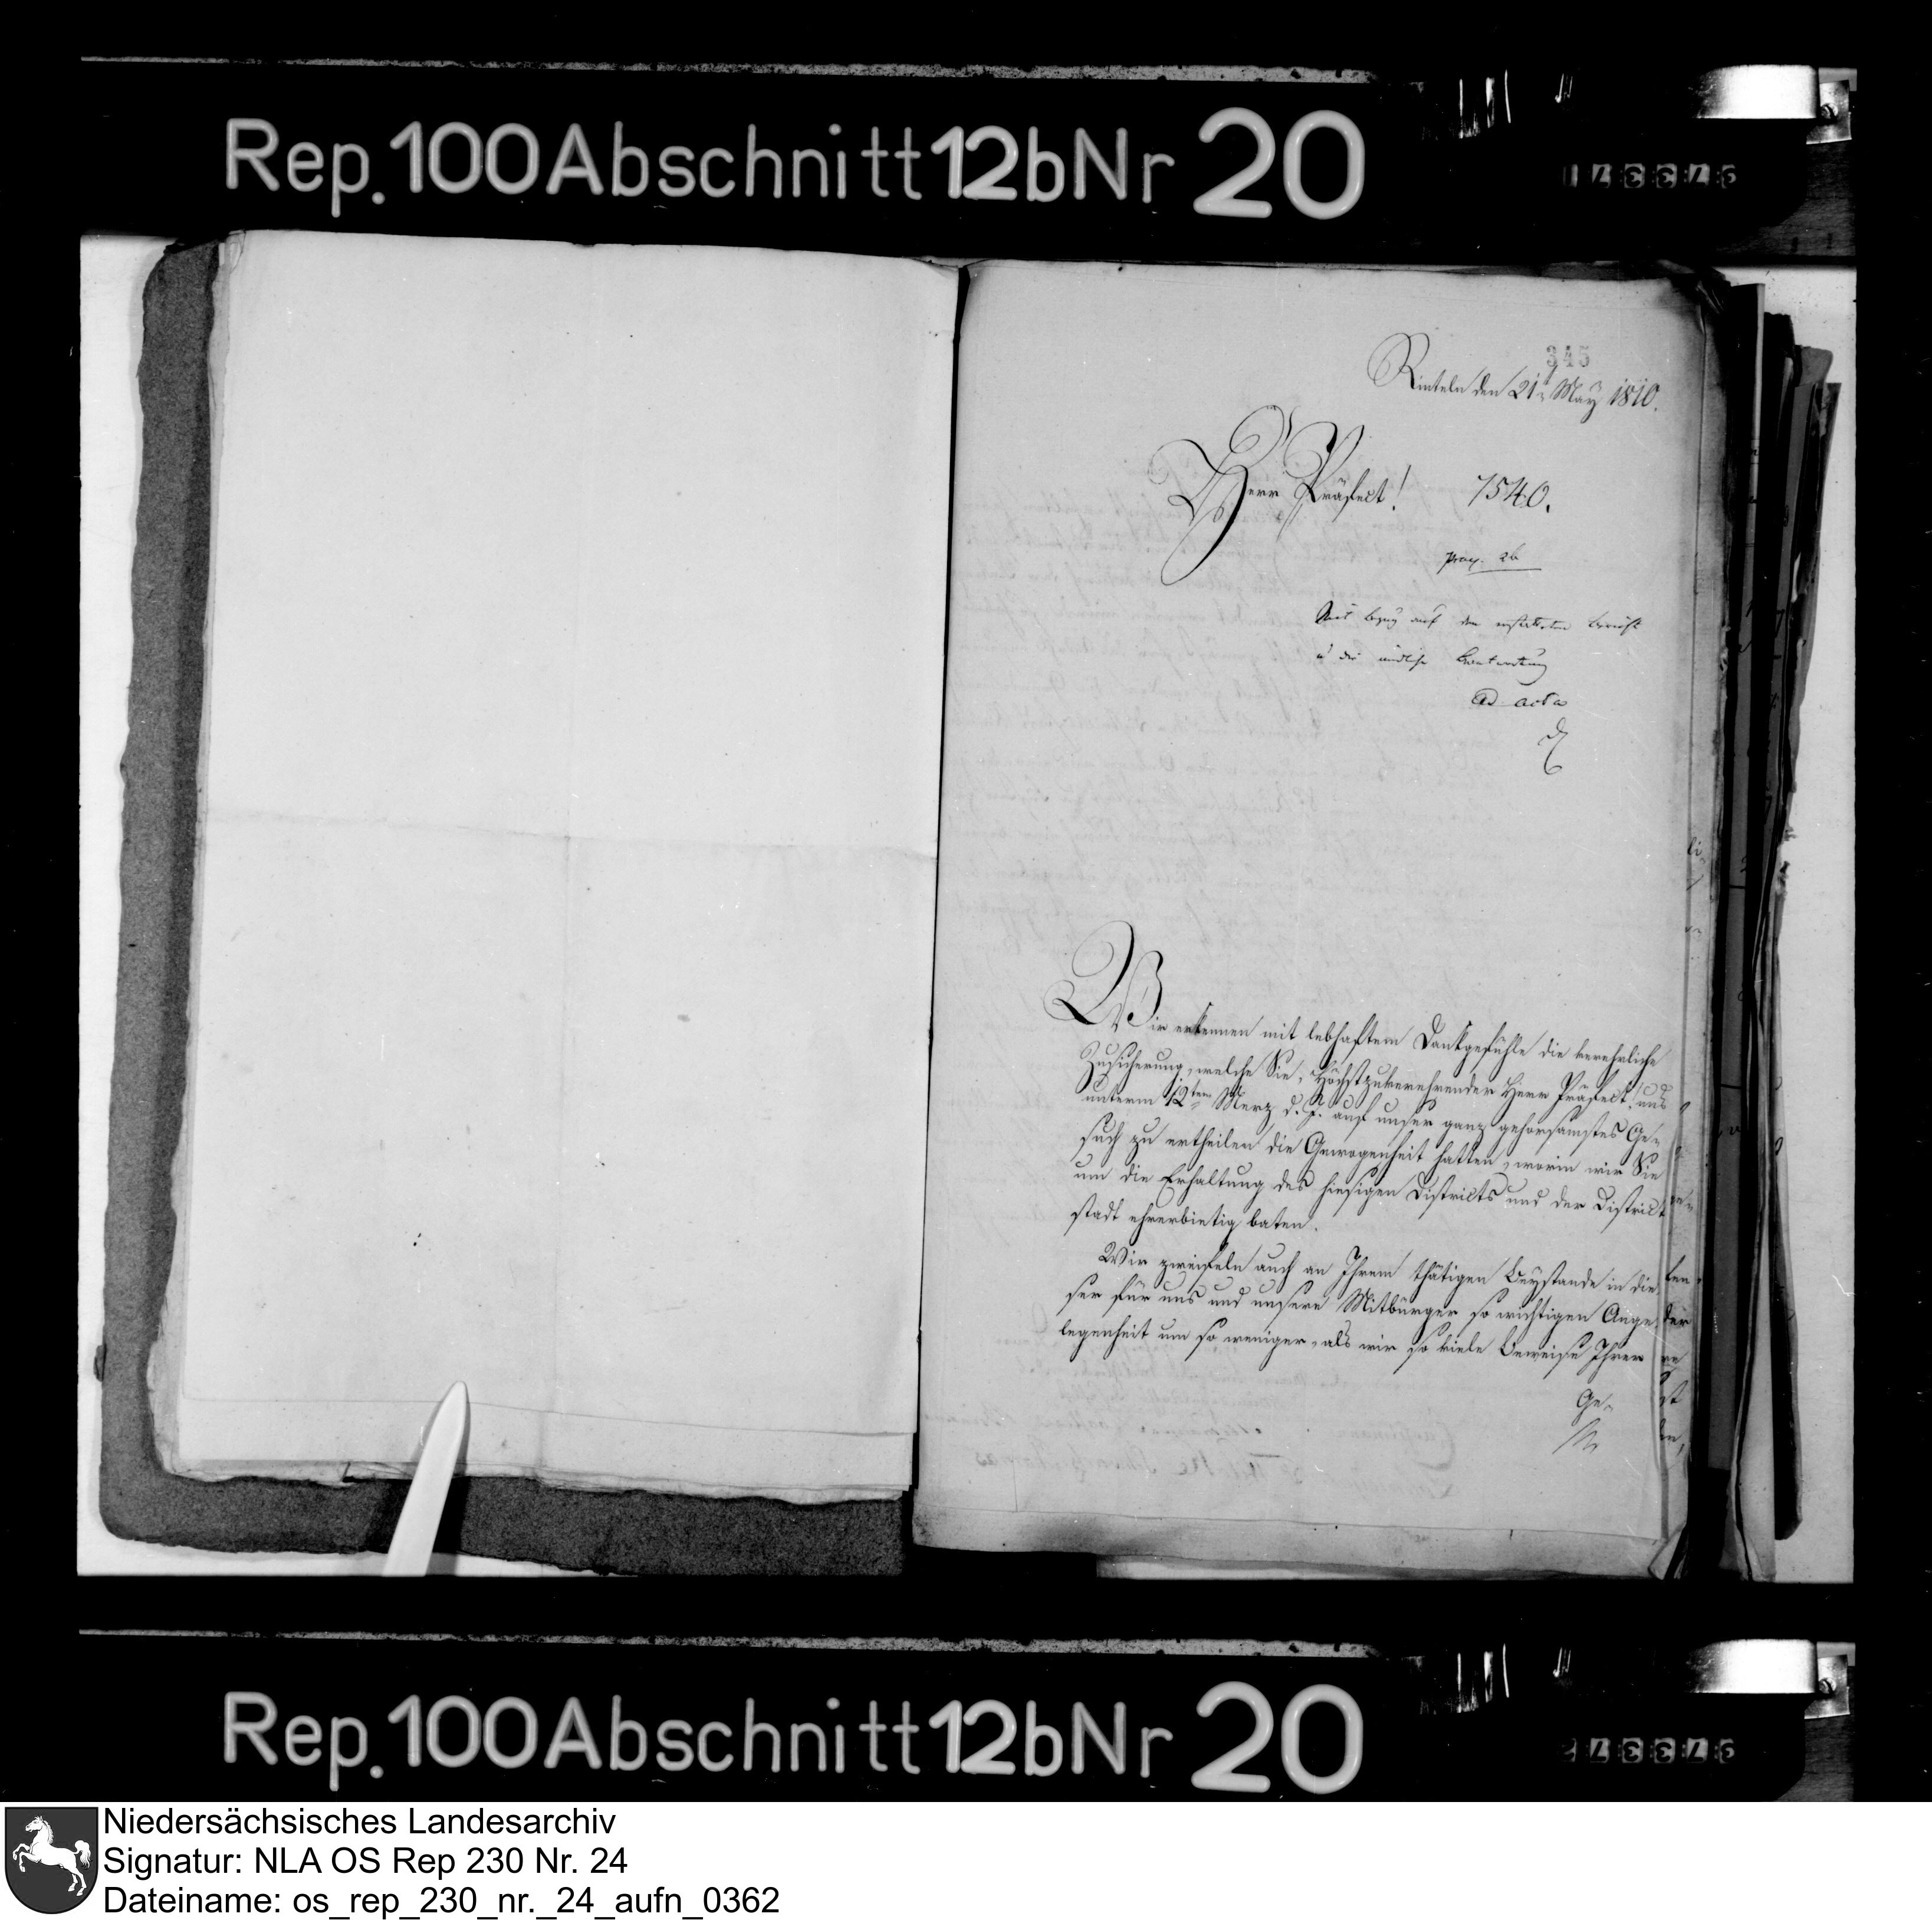 Rep. 100 Abschnitt 12b Nr 20
345
Rinteln den 21t May 1810.
Herr Präfect!
1540.
praes. 26
Mit bezug auf den erstatteten Bericht
u die mündliche Beantwortung
ad acta
Wir erkennen mit lebhaftem Dankgefühle die verehrliche
Zusicherung, welche Sie, Höchstzuverehrender Herr Präfect! uns
unterm 12ten Merz d. J. auf unser ganz gehorsamstes Ge-
such zu ertheilen die Gewogenheit hatten, worin wir Sie
um die Erhaltung des hiesigen Districts und der District
stadt ehrerbietig baten.
Wir zweifeln auch an Ihrem thätigen Beystande in die-
ser für uns und unsere Mitbürger so wichtigen Ange-
legenheit um so weniger, als wir so viele Beweise Ihrer
Ge-
Rep. 100 Abschnitt 12b Nr 20
Niedersächsisches Landesarchiv
Signatur: NLA OS Rep 230 Nr. 24
Dateiname: os_rep_230_nr._24_aufn_0362